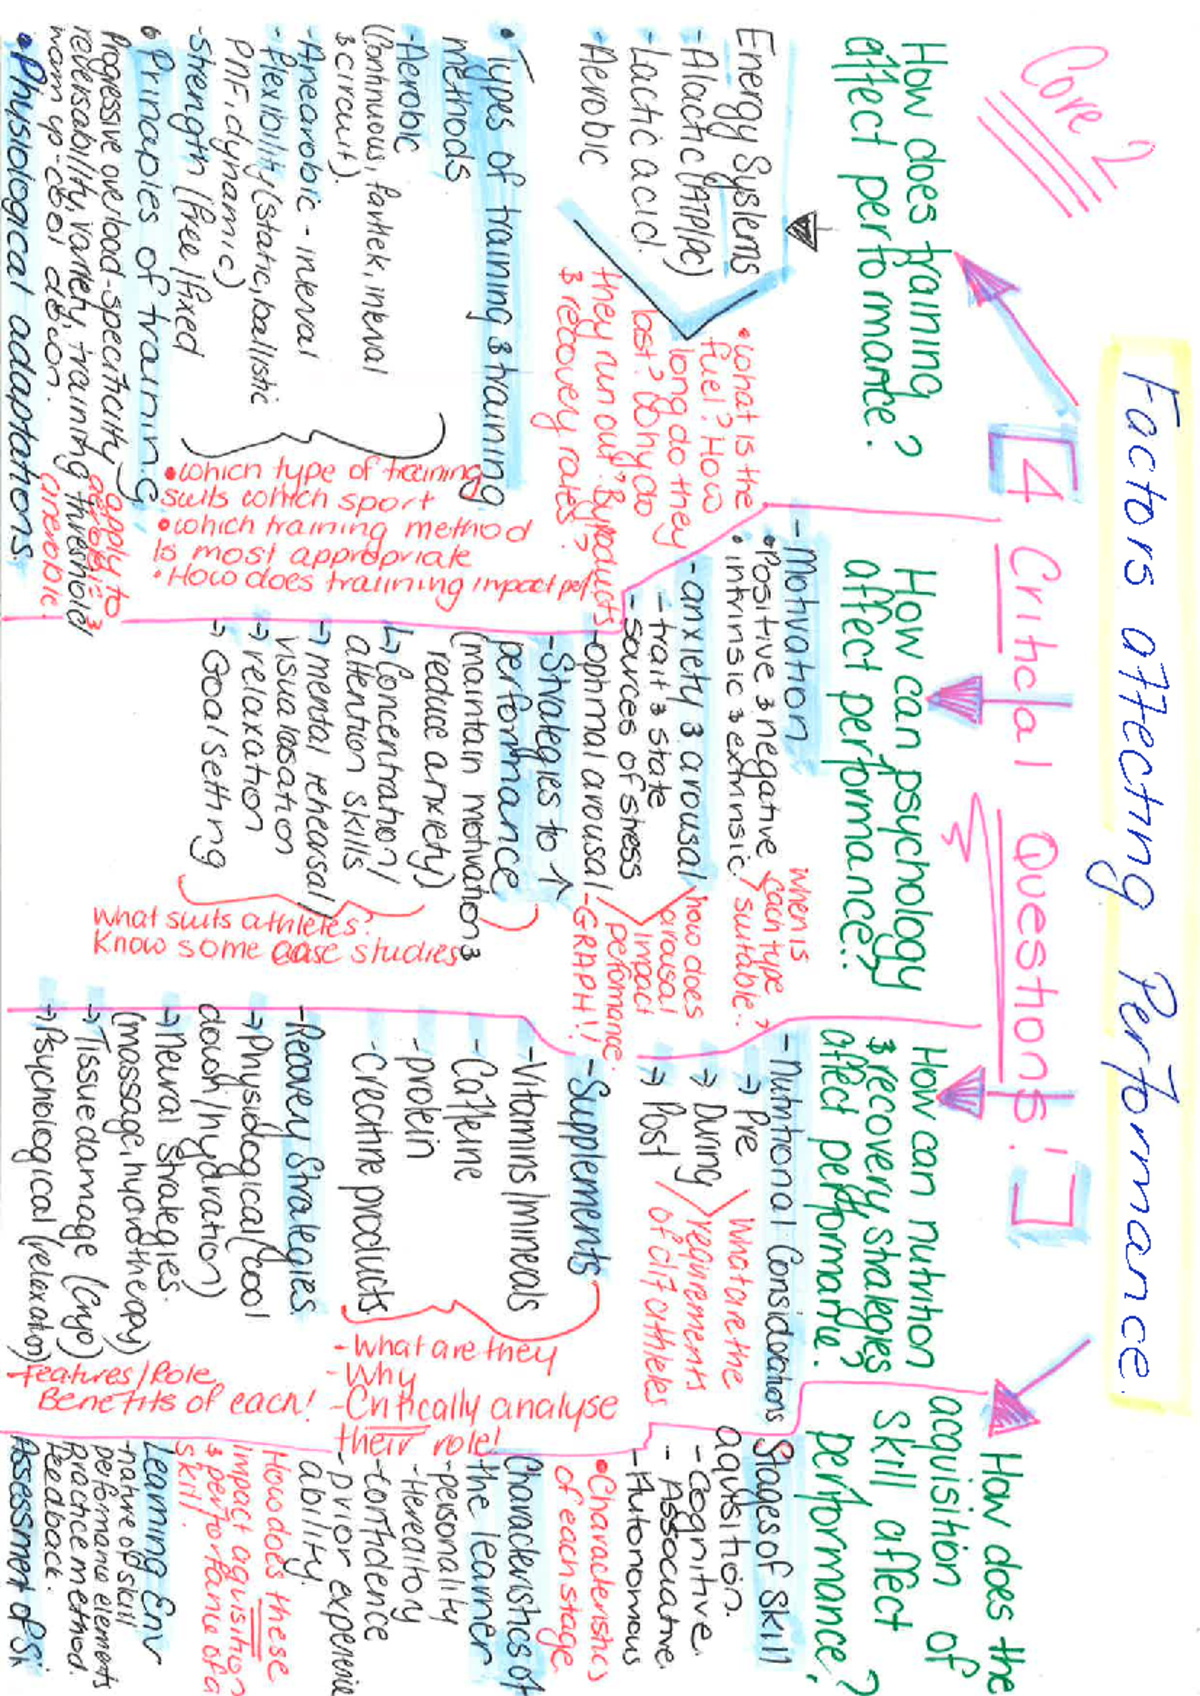 Core 2
Factors affecting Performance.
4 Critical Questions!
How does training
affect performance?
Energy Systems
- Alactic (ATP/PC)
- Lactic acid.
- Aerobic
• What is the
fuel? How
long do they
last? Why do
they run out? Byproducts
& recovery rates?
• Types of training & training
methods.
- Aerobic
(continuous, fartlek, inerval
& circuit).
- Aneorobic - inerval
- flexibility (static, ballistic
PNF, dynamic)
- strength (free/fixed
• Which type of training
suits which sport
• which training method
is most appropriate
• How does training impact pef.
• Principles of training
Progressive overload - specificity
reversability, variety, training threshold
warm up - cool down.
apply to
aerobic &
anerobic.
• Physiological adaptations.
How can psychology
affect performance?
- Motivation
• Positive & negative
• intrinsic & extrinsic
when is
each type
suitable?
- anxiety & arousal
- trait & state
- sources of stress
- optimal arousal - GRAPH!!
how does
arousal
impact
performance.
- Strategies to ↑
performance
(maintain motivation &
reduce anxiety)
↳ Concentration/
attention skills
→ mental rehearsal/
visualasation
→ relaxation
→ Goal setting
What suits athletes?
Know some case studies
How can nutrition
& recovery strategies
affect performance?
- Nutritional Considorations
→ Pre
→ During
→ Post
What are the
requirements
of dif athletes
- Supplements
- Vitamins/minerals
- Caffeine
- protein
- creatine products
- What are they
- Why
- Critically analyse
their role!
- Recovery Strategies.
→ Physiological (cool
down/hydration)
→ Neural Strategies.
(massage, hydrotherapy)
→ Tissue damage (Cryo)
→ Psychological (relaxation)
- features/Role
Benefits of each!
How does the
acquisition of
skill affect
performance?
Stages of Skill
aquisition.
- Cognitive.
- Associative.
- Autonomous
• Characteristics
of each stage.
Characteristics of
the learner
- personality
- Heredity
- confidence
- prior experience
ability.
How does these
impact aquisition
& performance of a
skill.
Learning Env
- nature of skill
performance elements
practice method.
feedback.
Assessment of Sk